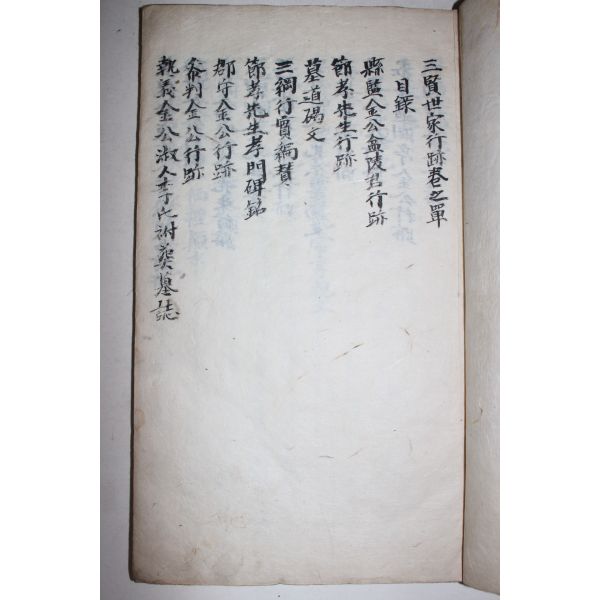 三賢世家行跡卷之單
目錄
縣監金公孟陵君行跡
節孝先生行跡
墓道碣文
三綱行實編贊
節孝先生孝門碑銘
郡守金公行跡
參判金公行跡
執義金公淑人李氏祔葬墓誌